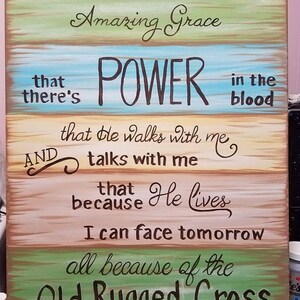 Amazing Grace
that there's POWER in the blood
that He walks with me
AND talks with me
that because He lives
I can face tomorrow
all because of the
Old Rugged Cross